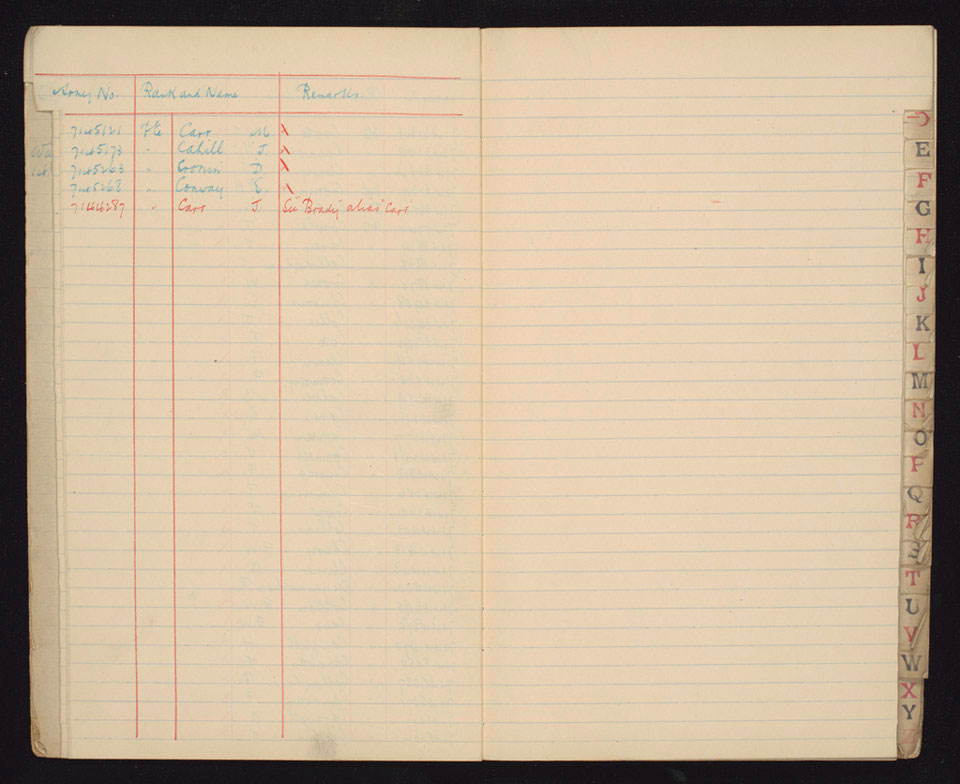 Army No. Rank and Name Remarks.
7145121 Pte Carr M. X
7145173 " Cahill J. X
7145263 " Cronin D. X
7145268 " Conway E. X
7144287 " Carr J. See "Brady" alias "Carr"
D
E
F
G
H
I
J
K
L
M
N
O
P
Q
R
S
T
U
V
W
X
Y